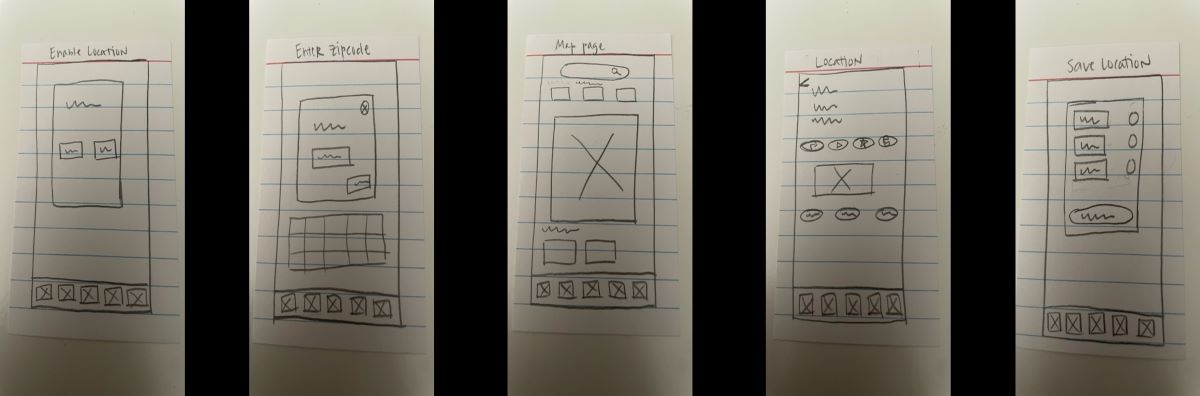 Enable Location
Enter Zipcode
Map page
Location
Save Location